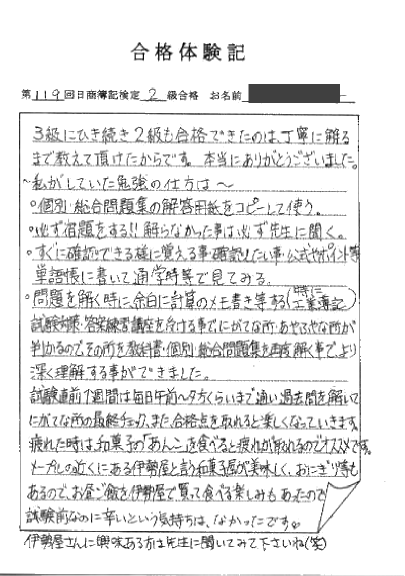 合格体験記
第119回日商簿記検定 2 級合格 お名前
3級にひき続き2級も合格できたのは、丁寧に解る
まで教えて頂けたからです。本当にありがとうございました。
〜私がしていた勉強の仕方は〜
○個別・総合問題集の解答用紙をコピーして使う。
○必ず宿題をする!!解らなかった事は必ず先生に聞く。
○すぐに確認できる様に覚える事・確認したい事・公式やポイント等
単語帳に書いて通学時等で見てみる。
○問題を解く時に、余白に計算のメモ書き等する(特に工業簿記)
試験対策・答案練習講座を受ける事でにがてな所・あやふやな所が
判かるのでその所を教科書・個別・総合問題集を再度解く事で、より
深く理解する事ができました。
試験直前1週間は毎日午前〜夕方くらいまで通い過去問を解いて
にがてな所の最終チェック、また合格点を取れると楽しくなっていきます。
疲れた時は、和菓子の「あんこ」を食べると疲れが取れるのでオススメです。
メープルの近くにある伊勢屋と言う和菓子屋が美味しく、おにぎり等も
あるので、お昼ご飯を伊勢屋で買って食べる楽しみもあったので
試験前なのに辛いという気持ちは、なかったです。
伊勢屋さんに興味ある方は先生に聞いてみて下さいね(笑)